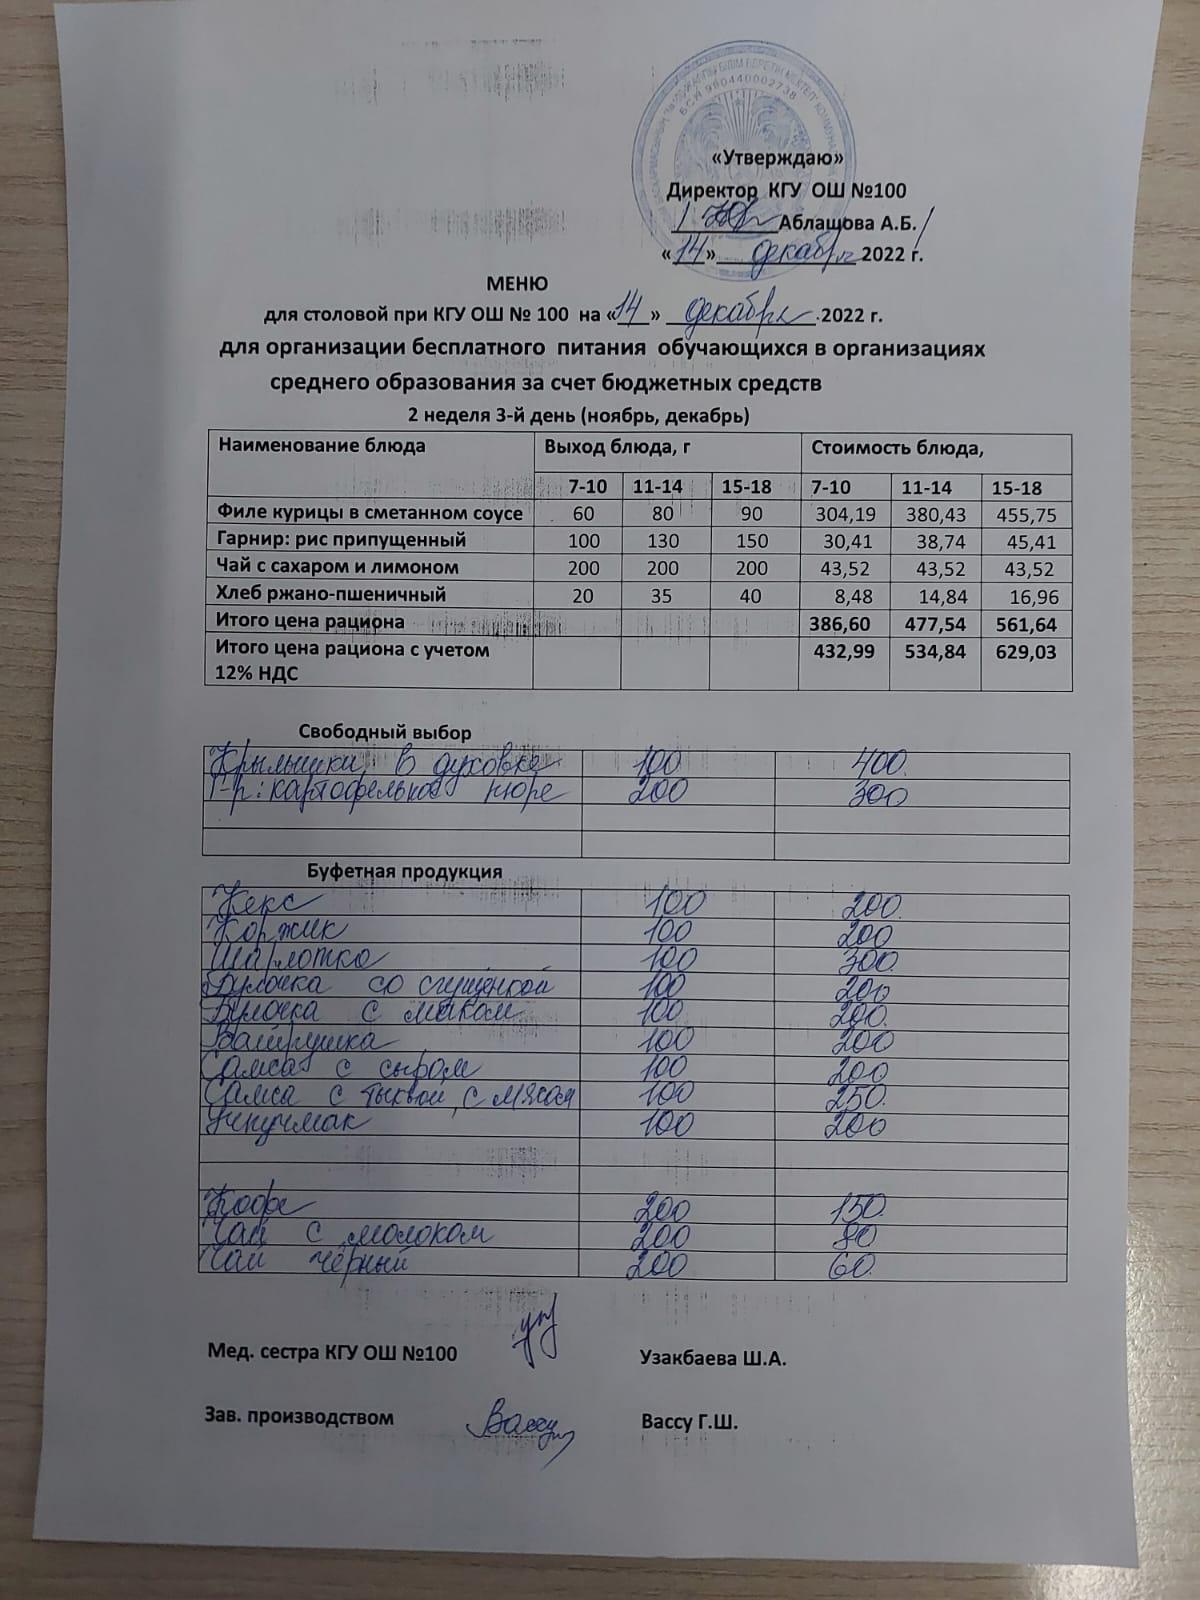 БІЛІМ БЕРЕТІН МЕКТЕП" КОММУНА
БСН 990440002738
«Утверждаю»
Директор КГУ ОШ №100
Аблащова А.Б./
«14» декабря 2022 г.
МЕНЮ
для столовой при КГУ ОШ № 100 на «14» декабря 2022 г.
для организации бесплатного питания обучающихся в организациях
среднего образования за счет бюджетных средств
2 неделя 3-й день (ноябрь, декабрь)
Наименование блюда Выход блюда, г Стоимость блюда,
7-10 11-14 15-18 7-10 11-14 15-18
Филе курицы в сметанном соусе 60 80 90 304,19 380,43 455,75
Гарнир: рис припущенный 100 130 150 30,41 38,74 45,41
Чай с сахаром и лимоном 200 200 200 43,52 43,52 43,52
Хлеб ржано-пшеничный 20 35 40 8,48 14,84 16,96
Итого цена рациона 386,60 477,54 561,64
Итого цена рациона с учетом 432,99 534,84 629,03
12% НДС
Свободный выбор
Крылышки в духовке 100 400
Г-р: картофельное пюре 200 300
Буфетная продукция
Кекс 100 200
Коржик 100 200
Шарлотка 100 300
Булочка со сгущёнкой 100 200
Булочка с маком 100 200
Ватрушка 100 200
Самса с сыром 100 200
Самса с тыквой, с мясом 100 250
Учпучмак 100 200
Кофе 200 150
Чай с молоком 200 80
Чай чёрный 200 60
Мед. сестра КГУ ОШ №100 Узакбаева Ш.А.
Зав. производством Вассу Вассу Г.Ш.